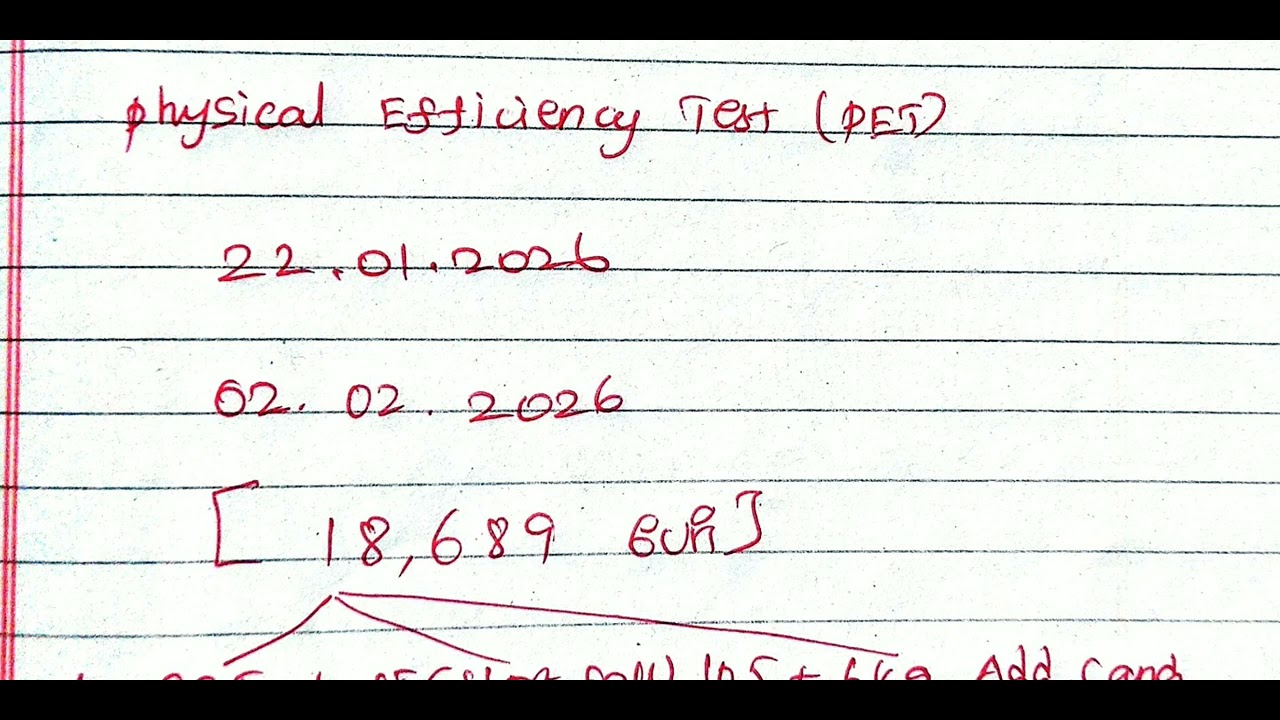 Physical Efficiency Test (PET)
22.01.2026
02.02.2026
[ 18,689 பேர் ]
Add Cand